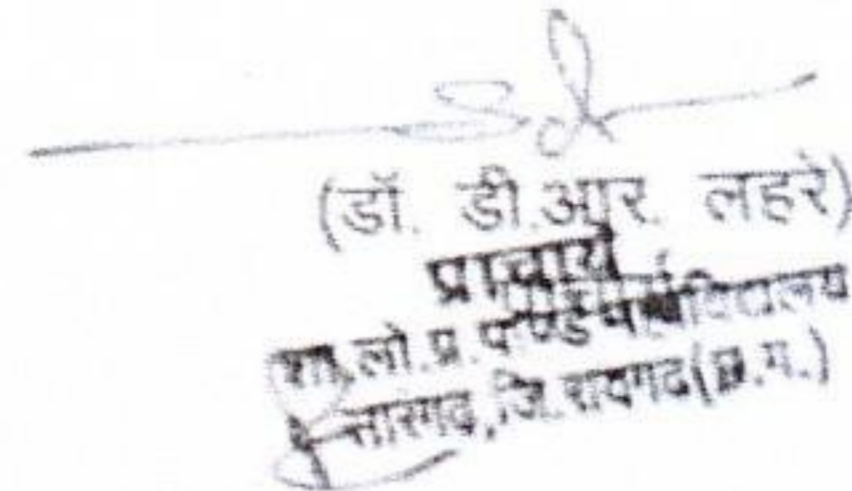 Sd
(डॉ. डी.आर. लहरे)
प्राचार्य
शा.लो.प्र.पाण्डेय महाविद्यालय
सारंगढ़, जि. रायगढ़(छ.ग.)